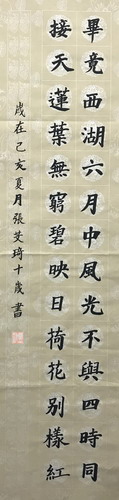 畢竟西湖六月中風光不與四時同
接天蓮葉無窮碧映日荷花别樣紅
歲在己亥夏月張艾琦十歲書